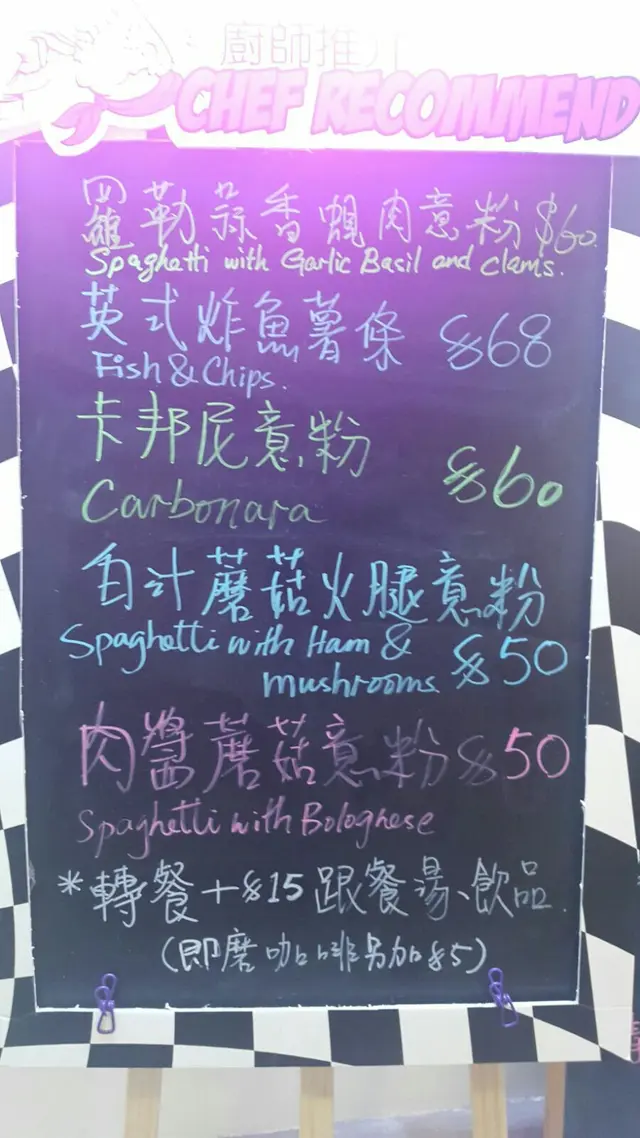 廚師推介
CHEF RECOMMEND
羅勒蒜香蜆肉意粉 $60.
Spaghetti with Garlic Basil and clams.
英式炸魚薯條 $68
Fish & Chips.
卡邦尼意粉
$60
Carbonara
白汁蘑菇火腿意粉
Spaghetti with Ham &
mushrooms $50
肉醬蘑菇意粉 $50
Spaghetti with Bolognese
*轉餐+$15 跟餐湯、飲品.
(即磨咖啡另加$5)